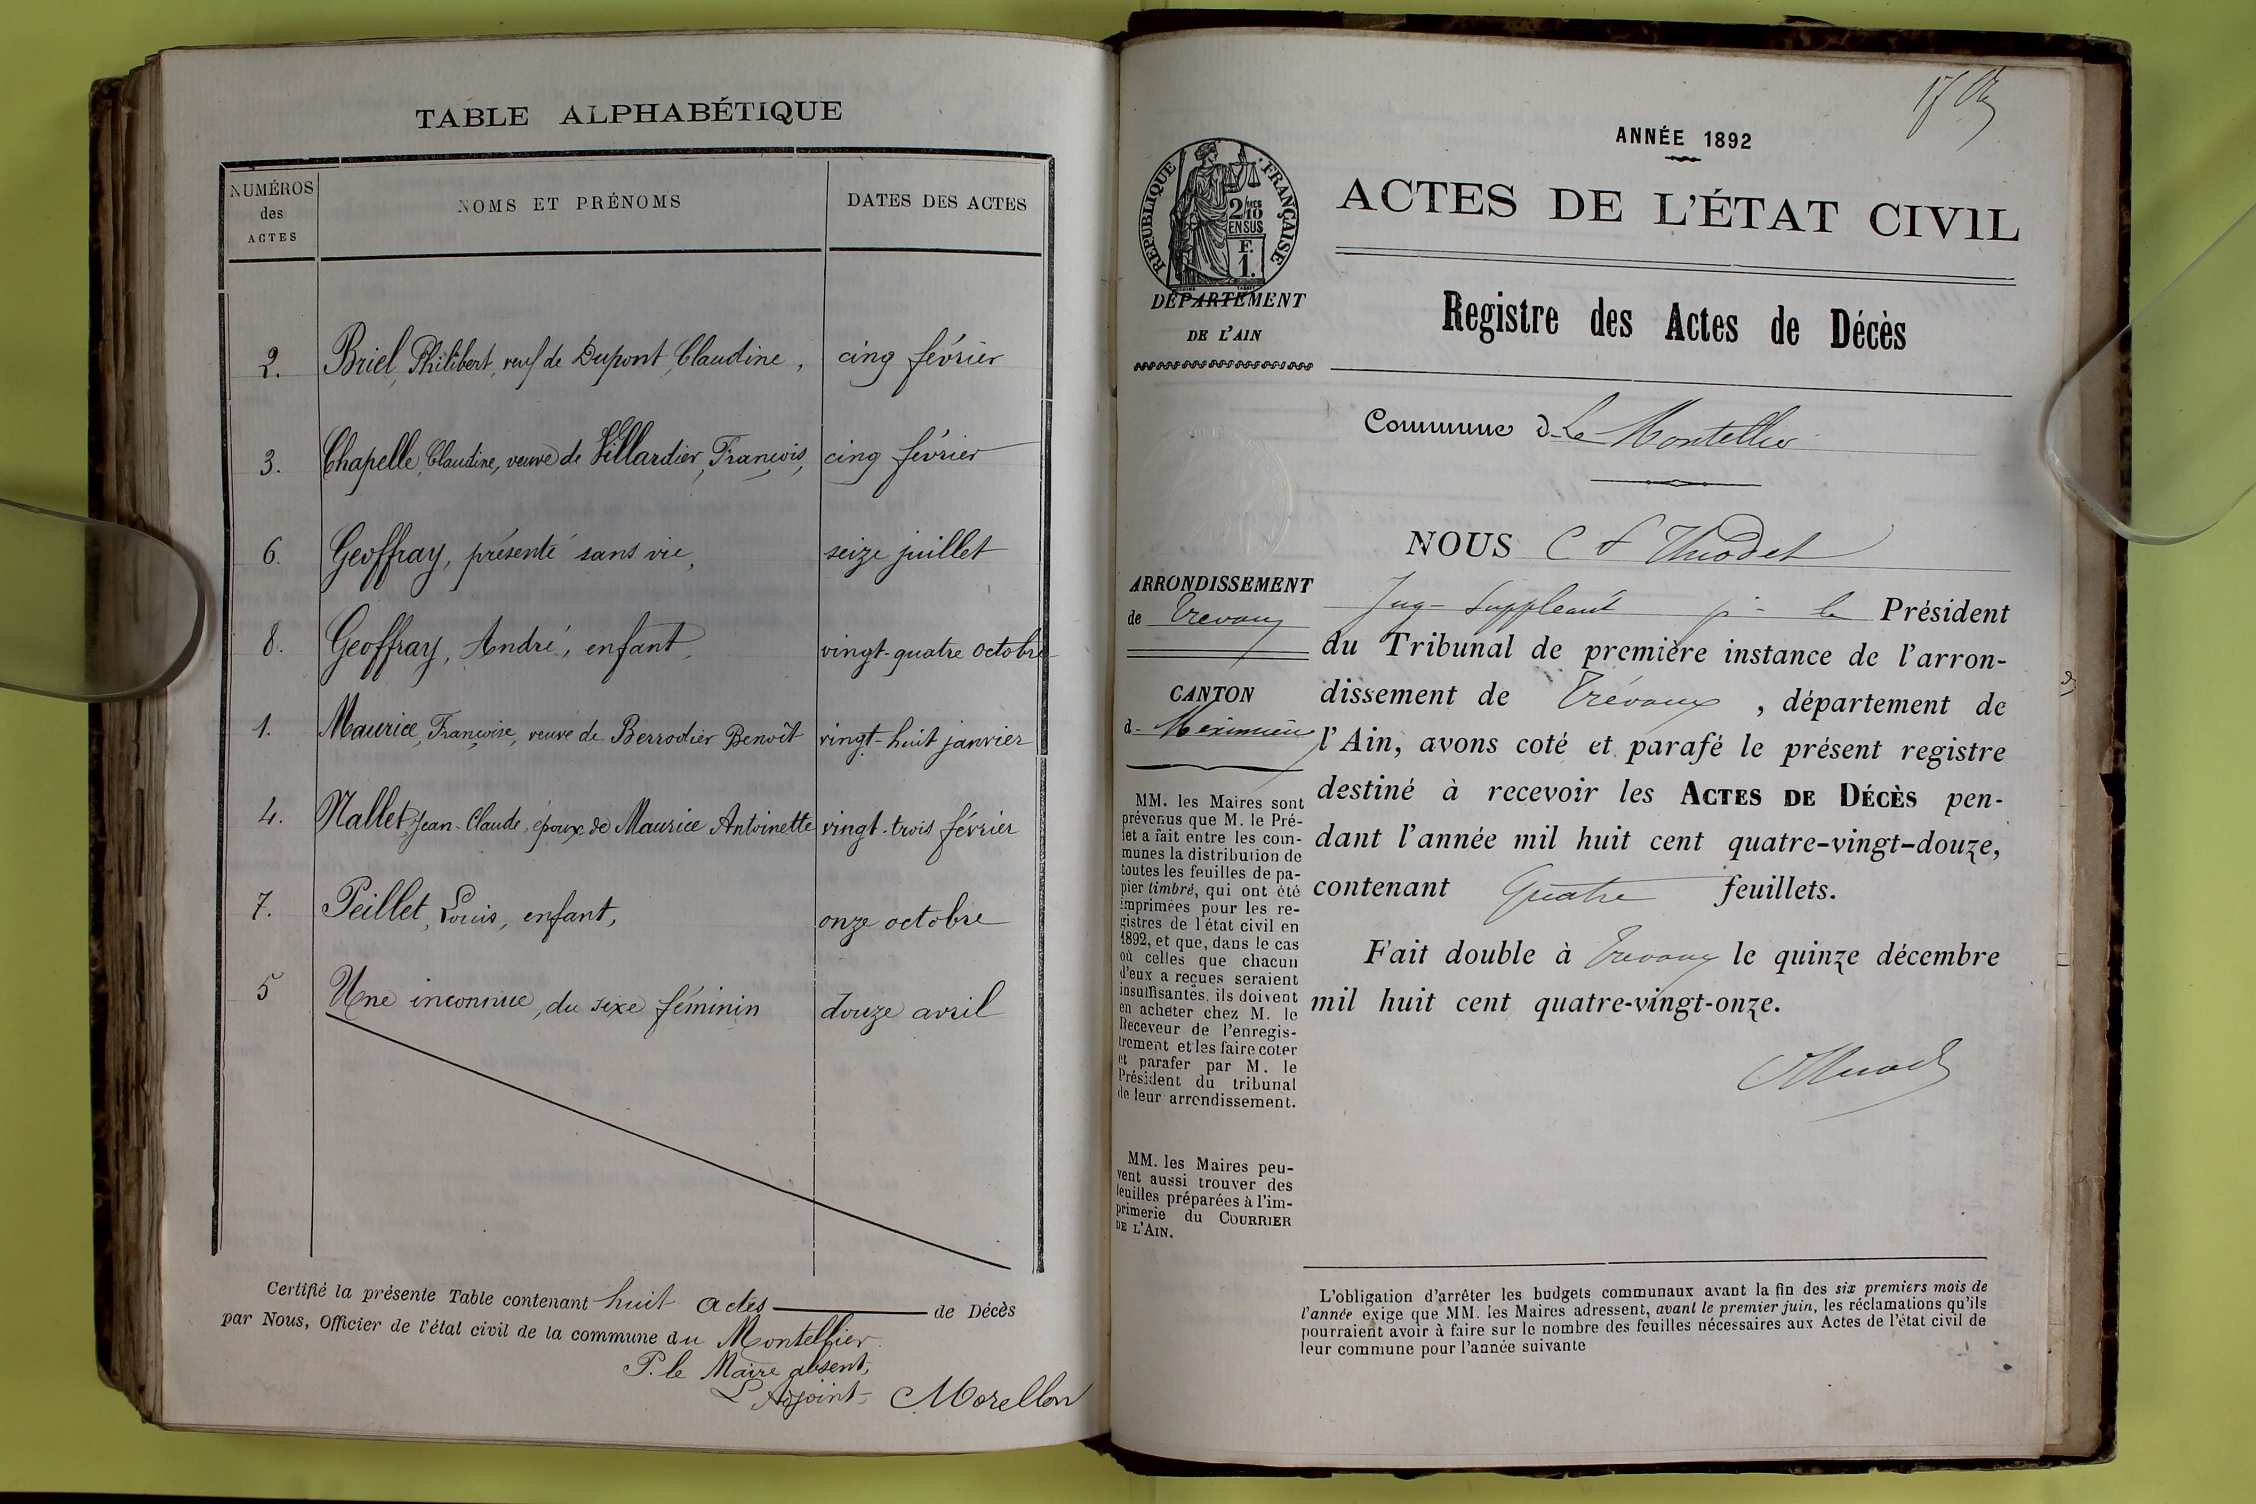 TABLE ALPHABÉTIQUE
NUMÉROS
des
ACTES
NOMS ET PRÉNOMS
DATES DES ACTES
2. Briel, Philibert, veuf de Dupont, Claudine, cinq février
3. Chapelle, Claudine, veuve de Villardier, François, cinq février
6. Geoffray, présenté sans vie, seize juillet
8. Geoffray, André, enfant, vingt-quatre octobre
1. Maurice, Françoise, veuve de Berrodier Benoît vingt-huit janvier
4. Nallet, Jean-Claude, époux de Maurice Antoinette vingt-trois février
7. Peillet, Louis, enfant, onze octobre
5 Une inconnue, du sexe féminin douze avril
Certifié la présente Table contenant huit actes de Décès
par Nous, Officier de l'état civil de la commune du Montellier.
P. le Maire absent,
L'Adjoint- Morellon
ANNÉE 1892
RÉPUBLIQUE FRANÇAISE
2/10
EN SUS
F.
1.
DÉPARTEMENT
DE L'AIN
ACTES DE L'ÉTAT CIVIL
Registre des Actes de Décès
Commune d-Le Montellier
ARRONDISSEMENT
de Trévoux
CANTON
d- Meximieu
MM. les Maires sont
prévenus que M. le Pré-
fet a fait entre les com-
munes la distribution de
toutes les feuilles de pa-
pier timbré, qui ont été
imprimées pour les re-
gistres de l'état civil en
1892, et que, dans le cas
où celles que chacun
d'eux a reçues seraient
insuffisantes, ils doivent
en acheter chez M. le
Receveur de l'enregis-
trement et les faire coter
et parafer par M. le
Président du tribunal
de leur arrondissement.
MM. les Maires peu-
vent aussi trouver des
feuilles préparées à l'im-
primerie du COURRIER
DE L'AIN.
NOUS C
Jug- Suppléant p- le Président
du Tribunal de première instance de l'arron-
dissement de Trévoux, département de
l'Ain, avons coté et parafé le présent registre
destiné à recevoir les ACTES DE DÉCÈS pen-
dant l'année mil huit cent quatre-vingt-douze,
contenant Quatre feuillets.
Fait double à Trévoux le quinze décembre
mil huit cent quatre-vingt-onze.
L'obligation d'arrêter les budgets communaux avant la fin des six premiers mois de
l'année exige que MM. les Maires adressent, avant le premier juin, les réclamations qu'ils
pourraient avoir à faire sur le nombre des feuilles nécessaires aux Actes de l'état civil de
leur commune pour l'année suivante